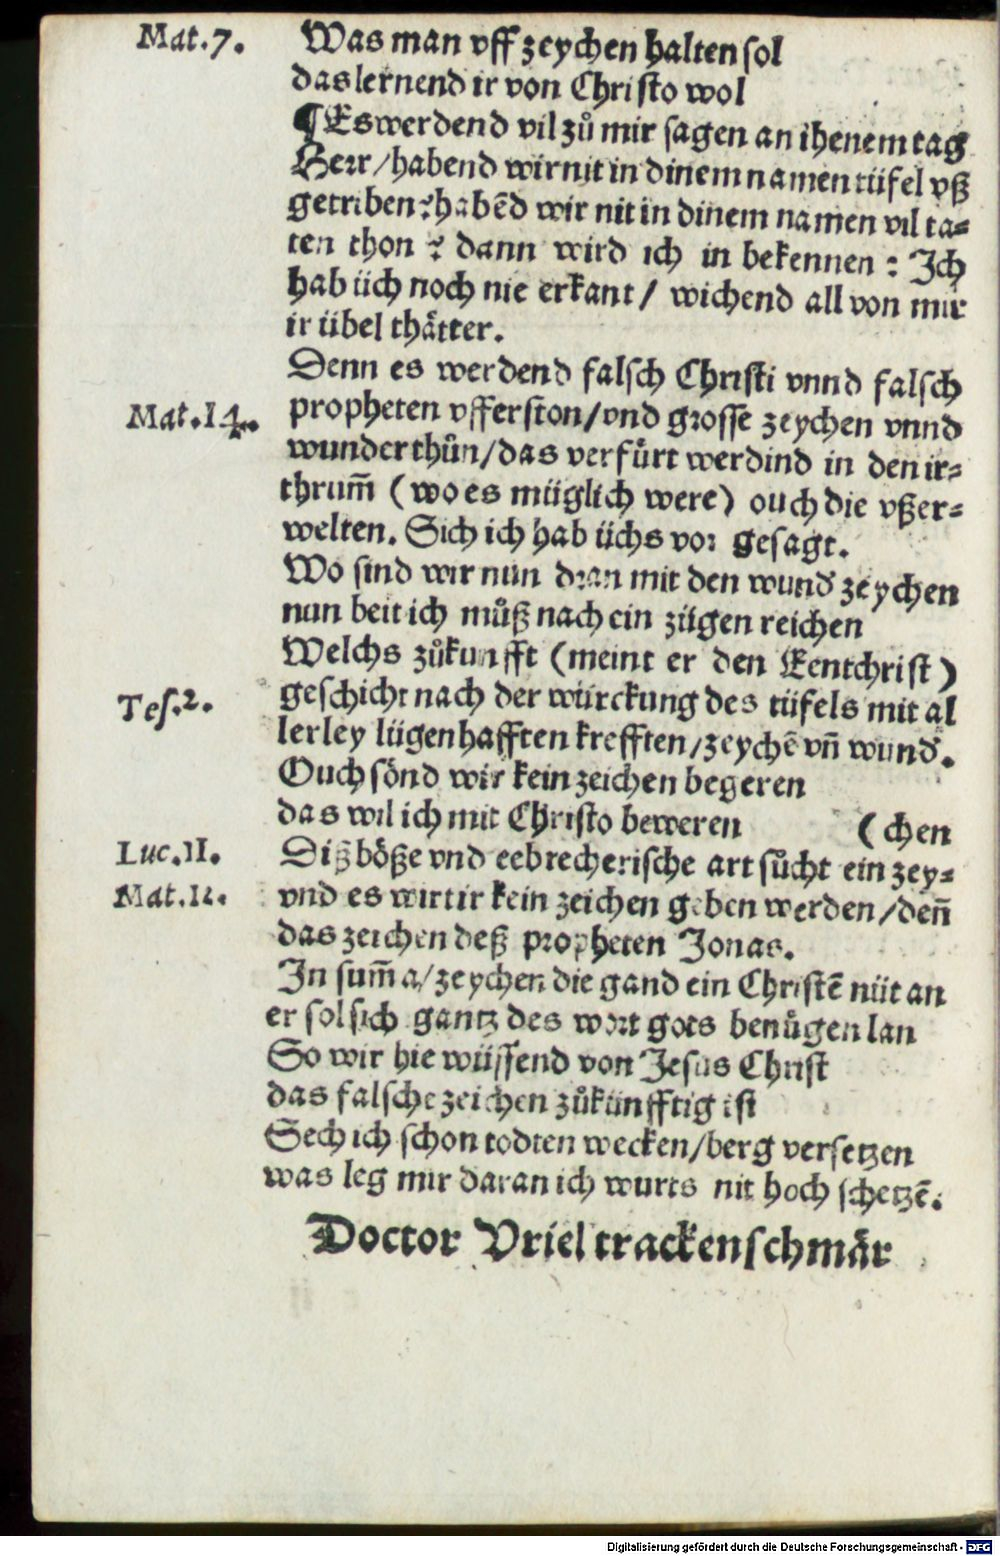 Mat.7. Was man vff zeychen halten sol
das lernend ir von Christo wol
¶Es werdend vil zů mir sagen an ihenem tag
Herr/habend wir nit in dinem namen tüfel vß
getriben? habẽd wir nit in dinem namen vil ta⸗
ten thon? dann wird ich in bekennen: Ich
hab üch noch nie erkant/ wichend all von mir
ir übel thåtter.
Denn es werdend falsch Christi vnnd falsch
Mat.14. propheten vfferston/vnd grosse zeychen vnnd
wunder thůn/das verfůrt werdind in den ir⸗
thrum̃ (wo es müglich were) ouch die vßer⸗
welten. Sich ich hab üchs vor gesagt.
Wo sind wir nun dran mit den wund' zeychen
nun beit ich můß nach ein zügen reichen
Welchs zůkunfft (meint er den Eentchrist)
Tes.2. geschicht nach der würckung des tüfels mit al
lerley lügenhafften krefften/zeychẽ vñ wund'.
Ouch sönd wir kein zeichen begeren
das wil ich mit Christo beweren (chen
Luc.11. Diß böße vnd eebrecherische art sůcht ein zey⸗
Mat.12. vnd es wirt ir kein zeichen geben werden/deñ
das zeichen deß propheten Jonas.
In sum̃a/zeychen die gand ein Christẽ nüt an
er sol sich gantz des wort gots benůgen lan
So wir hie wüssend von Jesus Christ
das falsche zeichen zůkünfftig ist
Sech ich schon todten wecken/berg versetzen
was leg mir daran ich wurts nit hoch schetzẽ.
Doctor Vriel trackenschmår
Digitalisierung gefördert durch die Deutsche Forschungsgemeinschaft - DFG